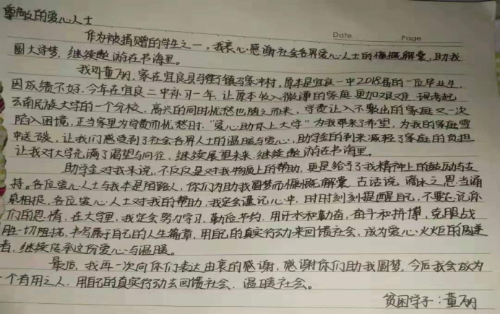 尊敬的爱心人士
Date Page
作为被捐赠的学生之一，我衷心感谢社会各界爱心人士的慷慨解囊，助我
圆大学梦，继续遨游在书海里。
我叫董丽，家在宜良县 镇 冲村，原本是宜良一中2018届的一位毕业生，
因成绩不好，今年在宜良二中补习一年，让原本收入微薄的家庭更加艰难，
云南民族大学的一个分校，高兴的同时忧愁也随之而来，学费让入不敷出的家庭又一次
陷入困境，正当家里为学费而忧愁时，"爱心助你上大学"为我带来了希望，为我的家庭雪
中送炭，让我们感受到了社会各界人士的温暖与爱心，助学金的到来减轻了家庭的负担
让我对大学充满了渴望与向往，继续展望未来，继续遨游在书海里。
助学金对我来说，不仅仅是对我物质上的帮助，更是给予我精神上的鼓励与支
持，各位爱心人士与我本是陌路人，你们为助我圆梦而慷慨解囊，古话说，滴水之恩当涌
泉相报，各位爱心人士对我的帮助，我定会谨记心中，时时刻刻提醒自己，不要忘记你
们的恩情，在大学里，我定会努力学习，勤俭节约，用汗水和勤奋，奋斗和拼搏，克服战
胜一切阻挠，书写属于自己的人生篇章，用自己的真实行动来回馈社会，成为爱心火炬的传递
者，继续传承这份爱心与温暖。
最后，我再一次向你们表达由衷的感谢，感谢你们助我圆梦，今后我会成为
一个有用之人，用自己的真实行动去回馈社会，温暖社会。
贫困学子：董丽